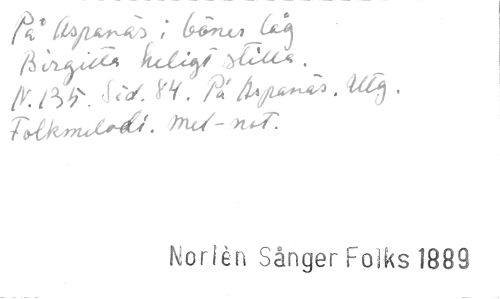 På Aspanäs i böner låg
Birgitta heligt stilla.
N. 135. Sid. 84. På Aspanäs. Utg.
Folkmelodi. Mel-not.
Norlèn Sånger Folks 1889